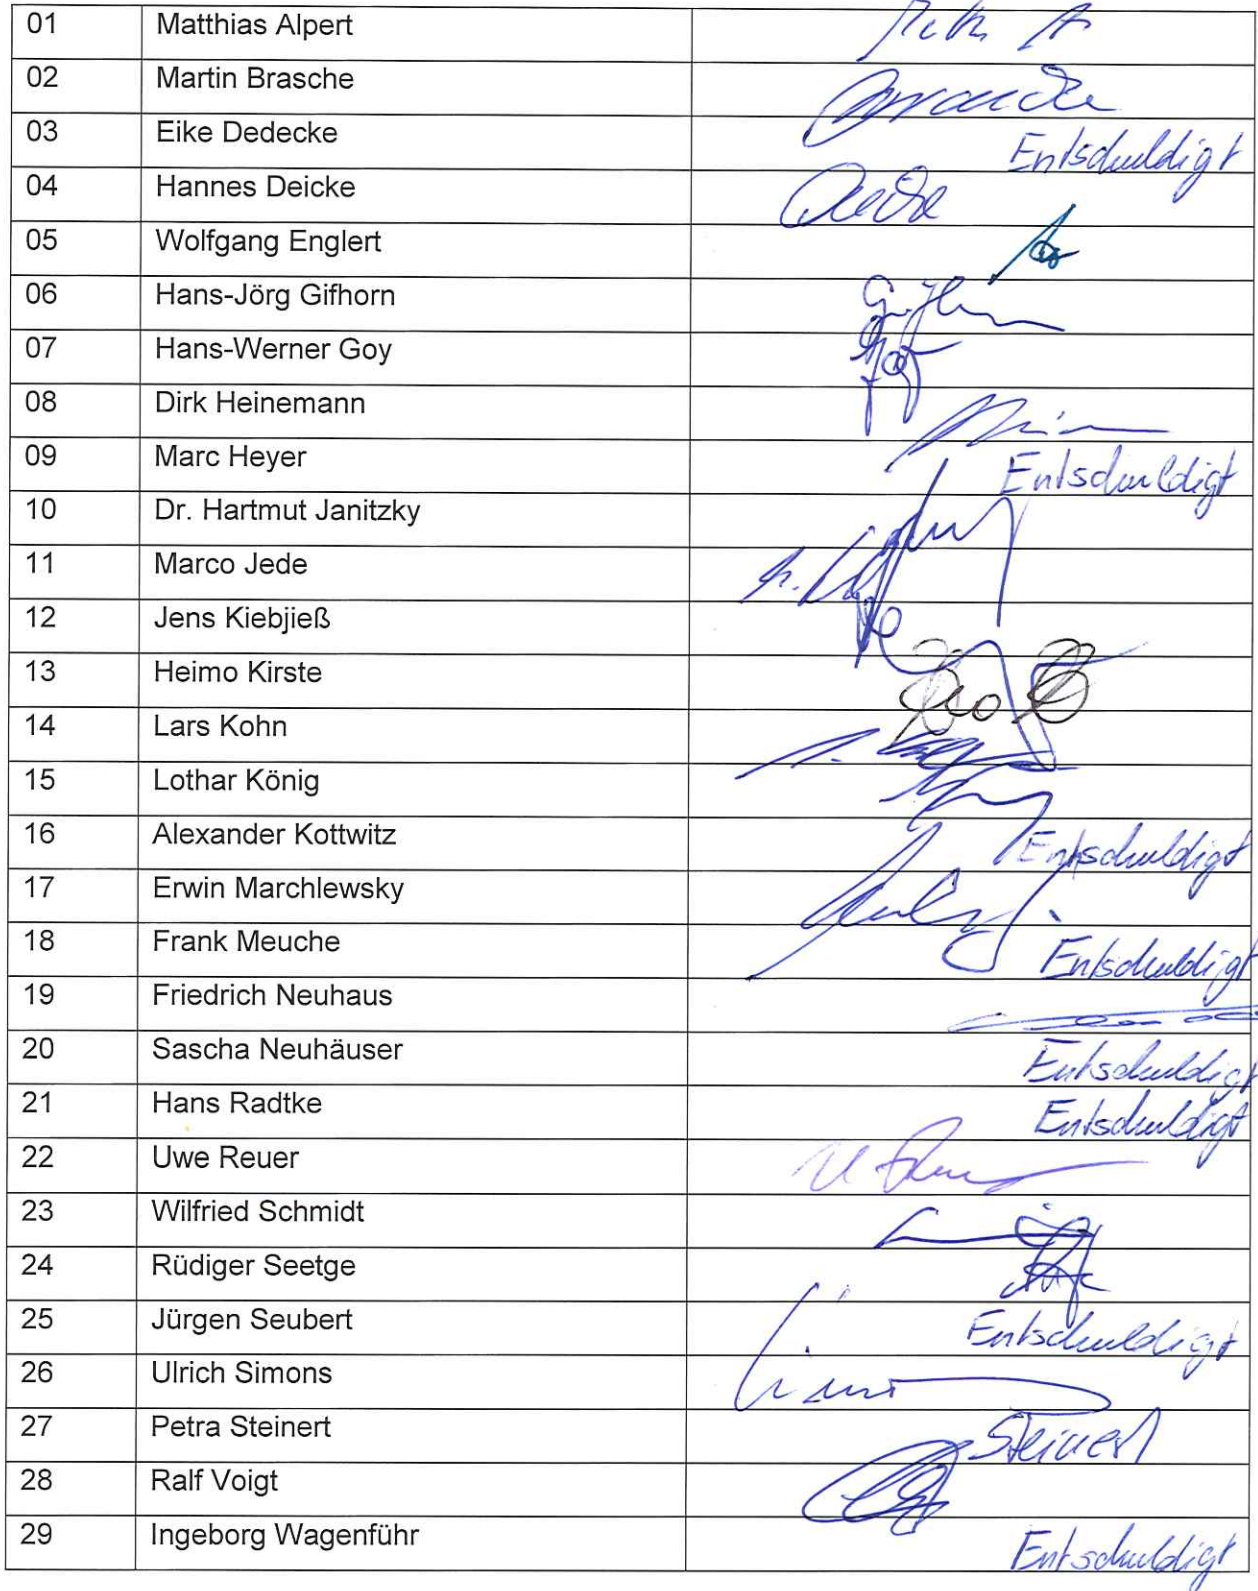 01 Matthias Alpert
02 Martin Brasche
03 Eike Dedecke Entschuldigt
04 Hannes Deicke
05 Wolfgang Englert
06 Hans-Jörg Gifhorn
07 Hans-Werner Goy
08 Dirk Heinemann
09 Marc Heyer Entschuldigt
10 Dr. Hartmut Janitzky
11 Marco Jede
12 Jens Kiebjieß
13 Heimo Kirste
14 Lars Kohn
15 Lothar König
16 Alexander Kottwitz Entschuldigt
17 Erwin Marchlewsky
18 Frank Meuche Entschuldigt
19 Friedrich Neuhaus
20 Sascha Neuhäuser Entschuldigt
21 Hans Radtke Entschuldigt
22 Uwe Reuer
23 Wilfried Schmidt
24 Rüdiger Seetge
25 Jürgen Seubert Entschuldigt
26 Ulrich Simons
27 Petra Steinert Steinert
28 Ralf Voigt
29 Ingeborg Wagenführ Entschuldigt